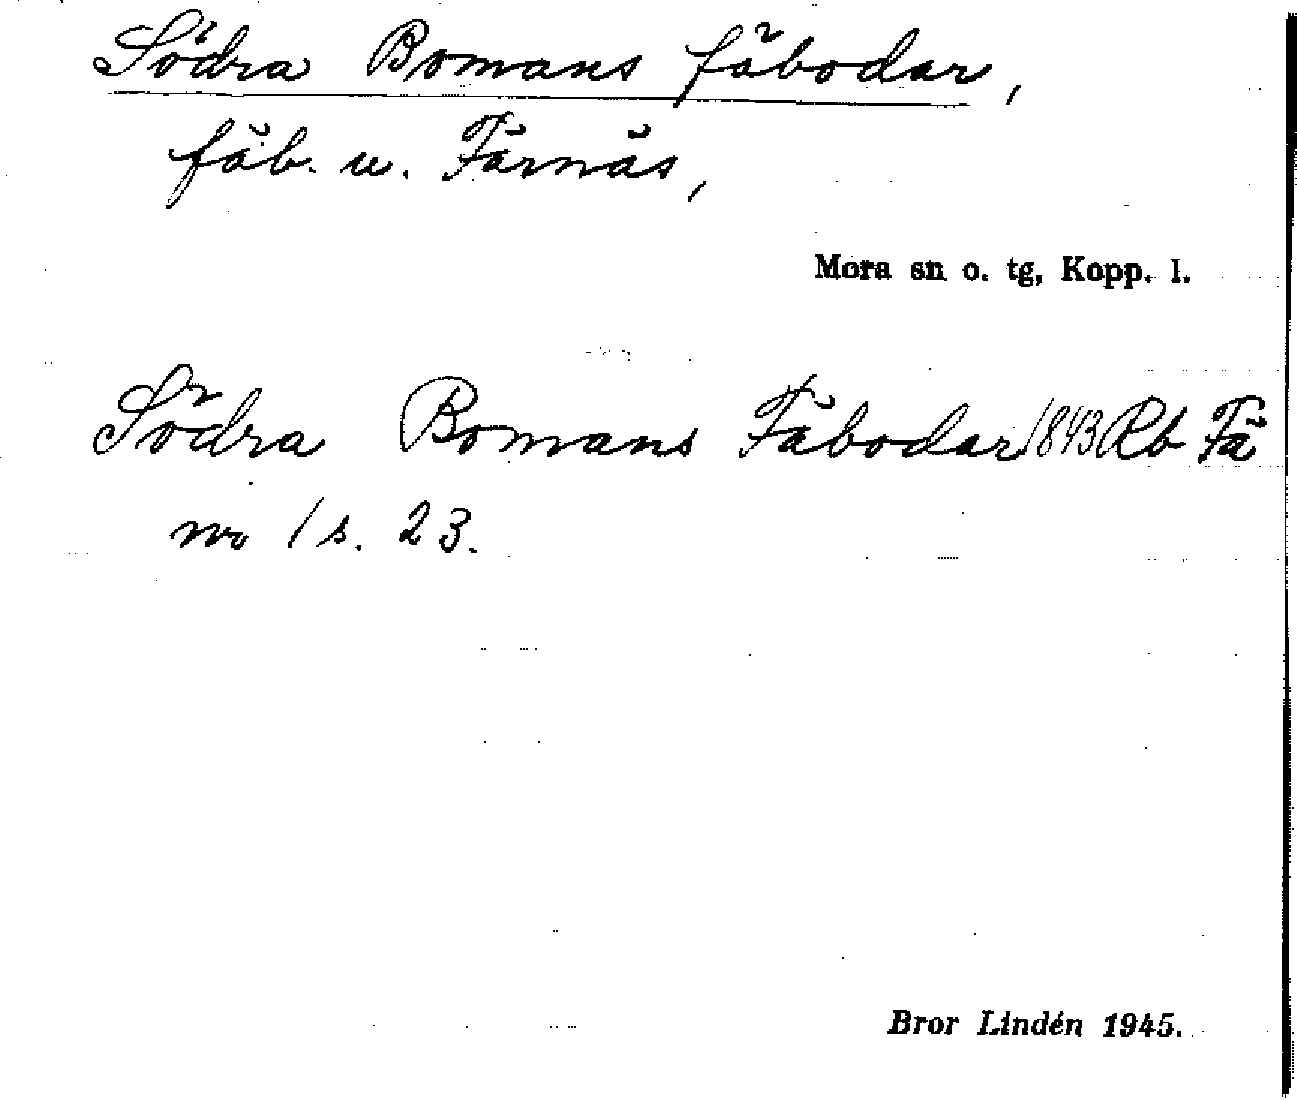 Södra Bomans fäbodar,
fäb. u. Färnäs,
Mora sn o. tg, Kopp. l.
Södra Bomans Fäbodar 1843 Rb Fä
no 1 s. 23.
Bror Lindén 1945.